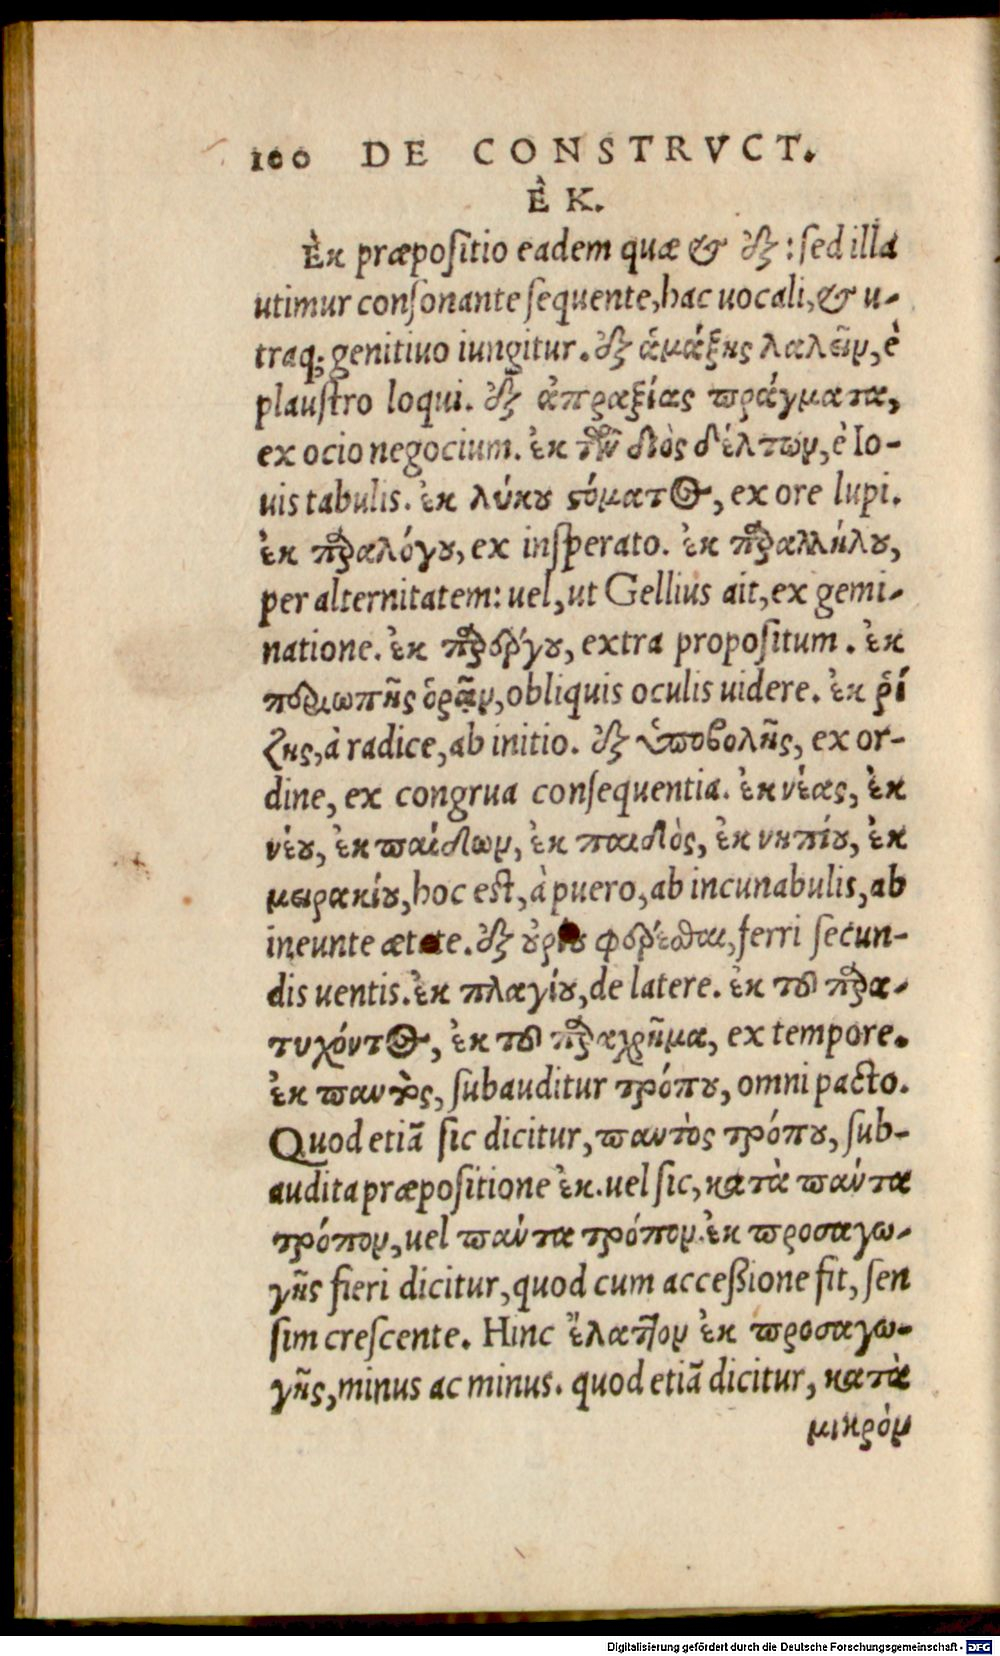 100 DE CONSTRVCT.
ἘΚ.
Ἐκ præpositio eadem quæ & ἐξ: sed illa
utimur consonante sequente, hac uocali, & u-
traq; genitiuo iungitur. ἐξ ἁμάξης λαλεῖν, è
plaustro loqui. ἐξ ἀπραξίας πράγματα,
ex ocio negocium. ἐκ τῶν διὸς δέλτων, è Io-
uis tabulis. ἐκ λύκου στόματος, ex ore lupi.
ἐκ παραλόγου, ex insperato. ἐκ παραλλήλου,
per alternitatem: uel, ut Gellius ait, ex gemi-
natione. ἐκ παρέργου, extra propositum. ἐκ
περιωπῆς ὁρᾷν, obliquis oculis uidere. ἐκ ῥί
ζης, à radice, ab initio. ἐξ ὑποβολῆς, ex or-
dine, ex congrua consequentia. ἐκ νέας, ἐκ
νέου, ἐκ παίδων, ἐκ παιδὸς, ἐκ νηπίου, ἐκ
μειρακίου, hoc est, à puero, ab incunabulis, ab
ineunte ætate. ἐξ οὐρίου φέρεσθαι, ferri secun-
dis uentis. ἐκ πλαγίου, de latere. ἐκ τοῦ παρα-
τυχόντος, ἐκ τοῦ παραχρῆμα, ex tempore.
ἐκ παντὸς, subauditur τρόπου, omni pacto.
Quod etiã sic dicitur, παντὸς τρόπου, sub-
audita præpositione ἐκ. uel sic, κατὰ πάντα
τρόπον, uel πάντα τρόπον. ἐκ προσαγω-
γῆς fieri dicitur, quod cum accessione fit, sen
sim crescente. Hinc ἔλαττον ἐκ προσαγω-
γῆς, minus ac minus. quod etiã dicitur, κατὰ
μικρὸν
Digitalisierung gefördert durch die Deutsche Forschungsgemeinschaft - DFG